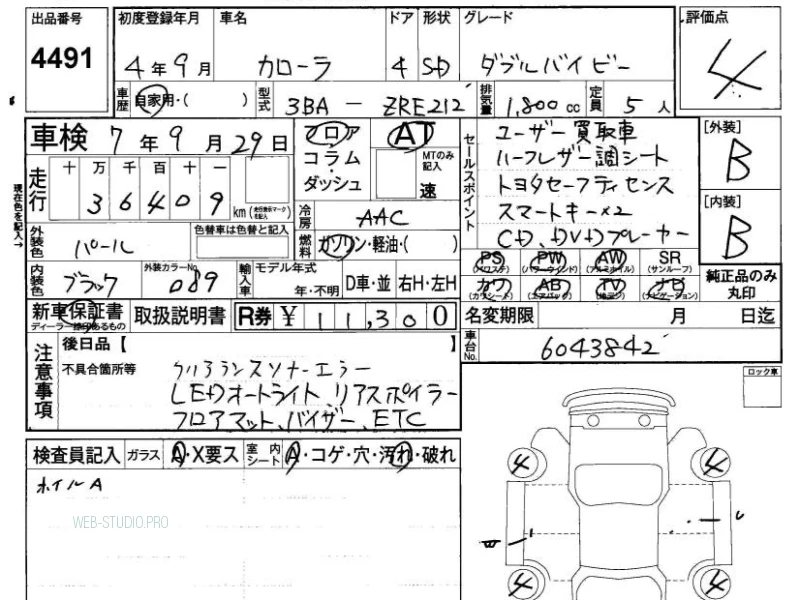 出品番号
4491
初度登録年月
4年9月
車名
カローラ
ドア
4
形状
SD
グレード
ダブルバイビー
評価点
4
車歴
自家用・( )
型式
3BA - ZRE212
排気量
1,800 cc
定員
5人
車検 7年9月29日
走行
十 万 千 百 十 一
3 6 4 0 9
km (走行表示マークを記入)
フロア
コラム
・
ダッシュ
AT
MTのみ記入
速
セールスポイント
ユーザー買取車
ハーフレザー調シート
トヨタセーフティセンス
スマートキー×2
CD、DVDプレーヤー
[外装]
B
[内装]
B
現在色を記入→
外装色
パール
色替車は色替と記入
冷房
AAC
燃料
ガソリン・軽油・( )
内装色
ブラック
外装カラーNo.
089
輸入車
モデル年式
年・不明
D車・並
右H・左H
PS
(パワステ)
PW
(パワーウインド)
AW
(アルミホイル)
SR
(サンルーフ)
カワ
(カワシート)
AB
(エアバック)
TV
(地デジ)
ナビ
(ナビゲーション)
純正品のみ
丸印
新車保証書
ディーラー捺印あるもの
取扱説明書
R券 ¥ 11,300
名変期限 月 日迄
車台No.
6043842
注意事項
後日品【 】
不具合箇所等
クリアランスソナーエラー
LEDオートライト リアスポイラー
フロアマット、バイザー、ETC
ロック車
検査員記入
ガラス
A・X要ス
室内シート
A・コゲ・穴・汚れ・破れ
ホイルA
WEB-STUDIO.PRO
4
4
4
4